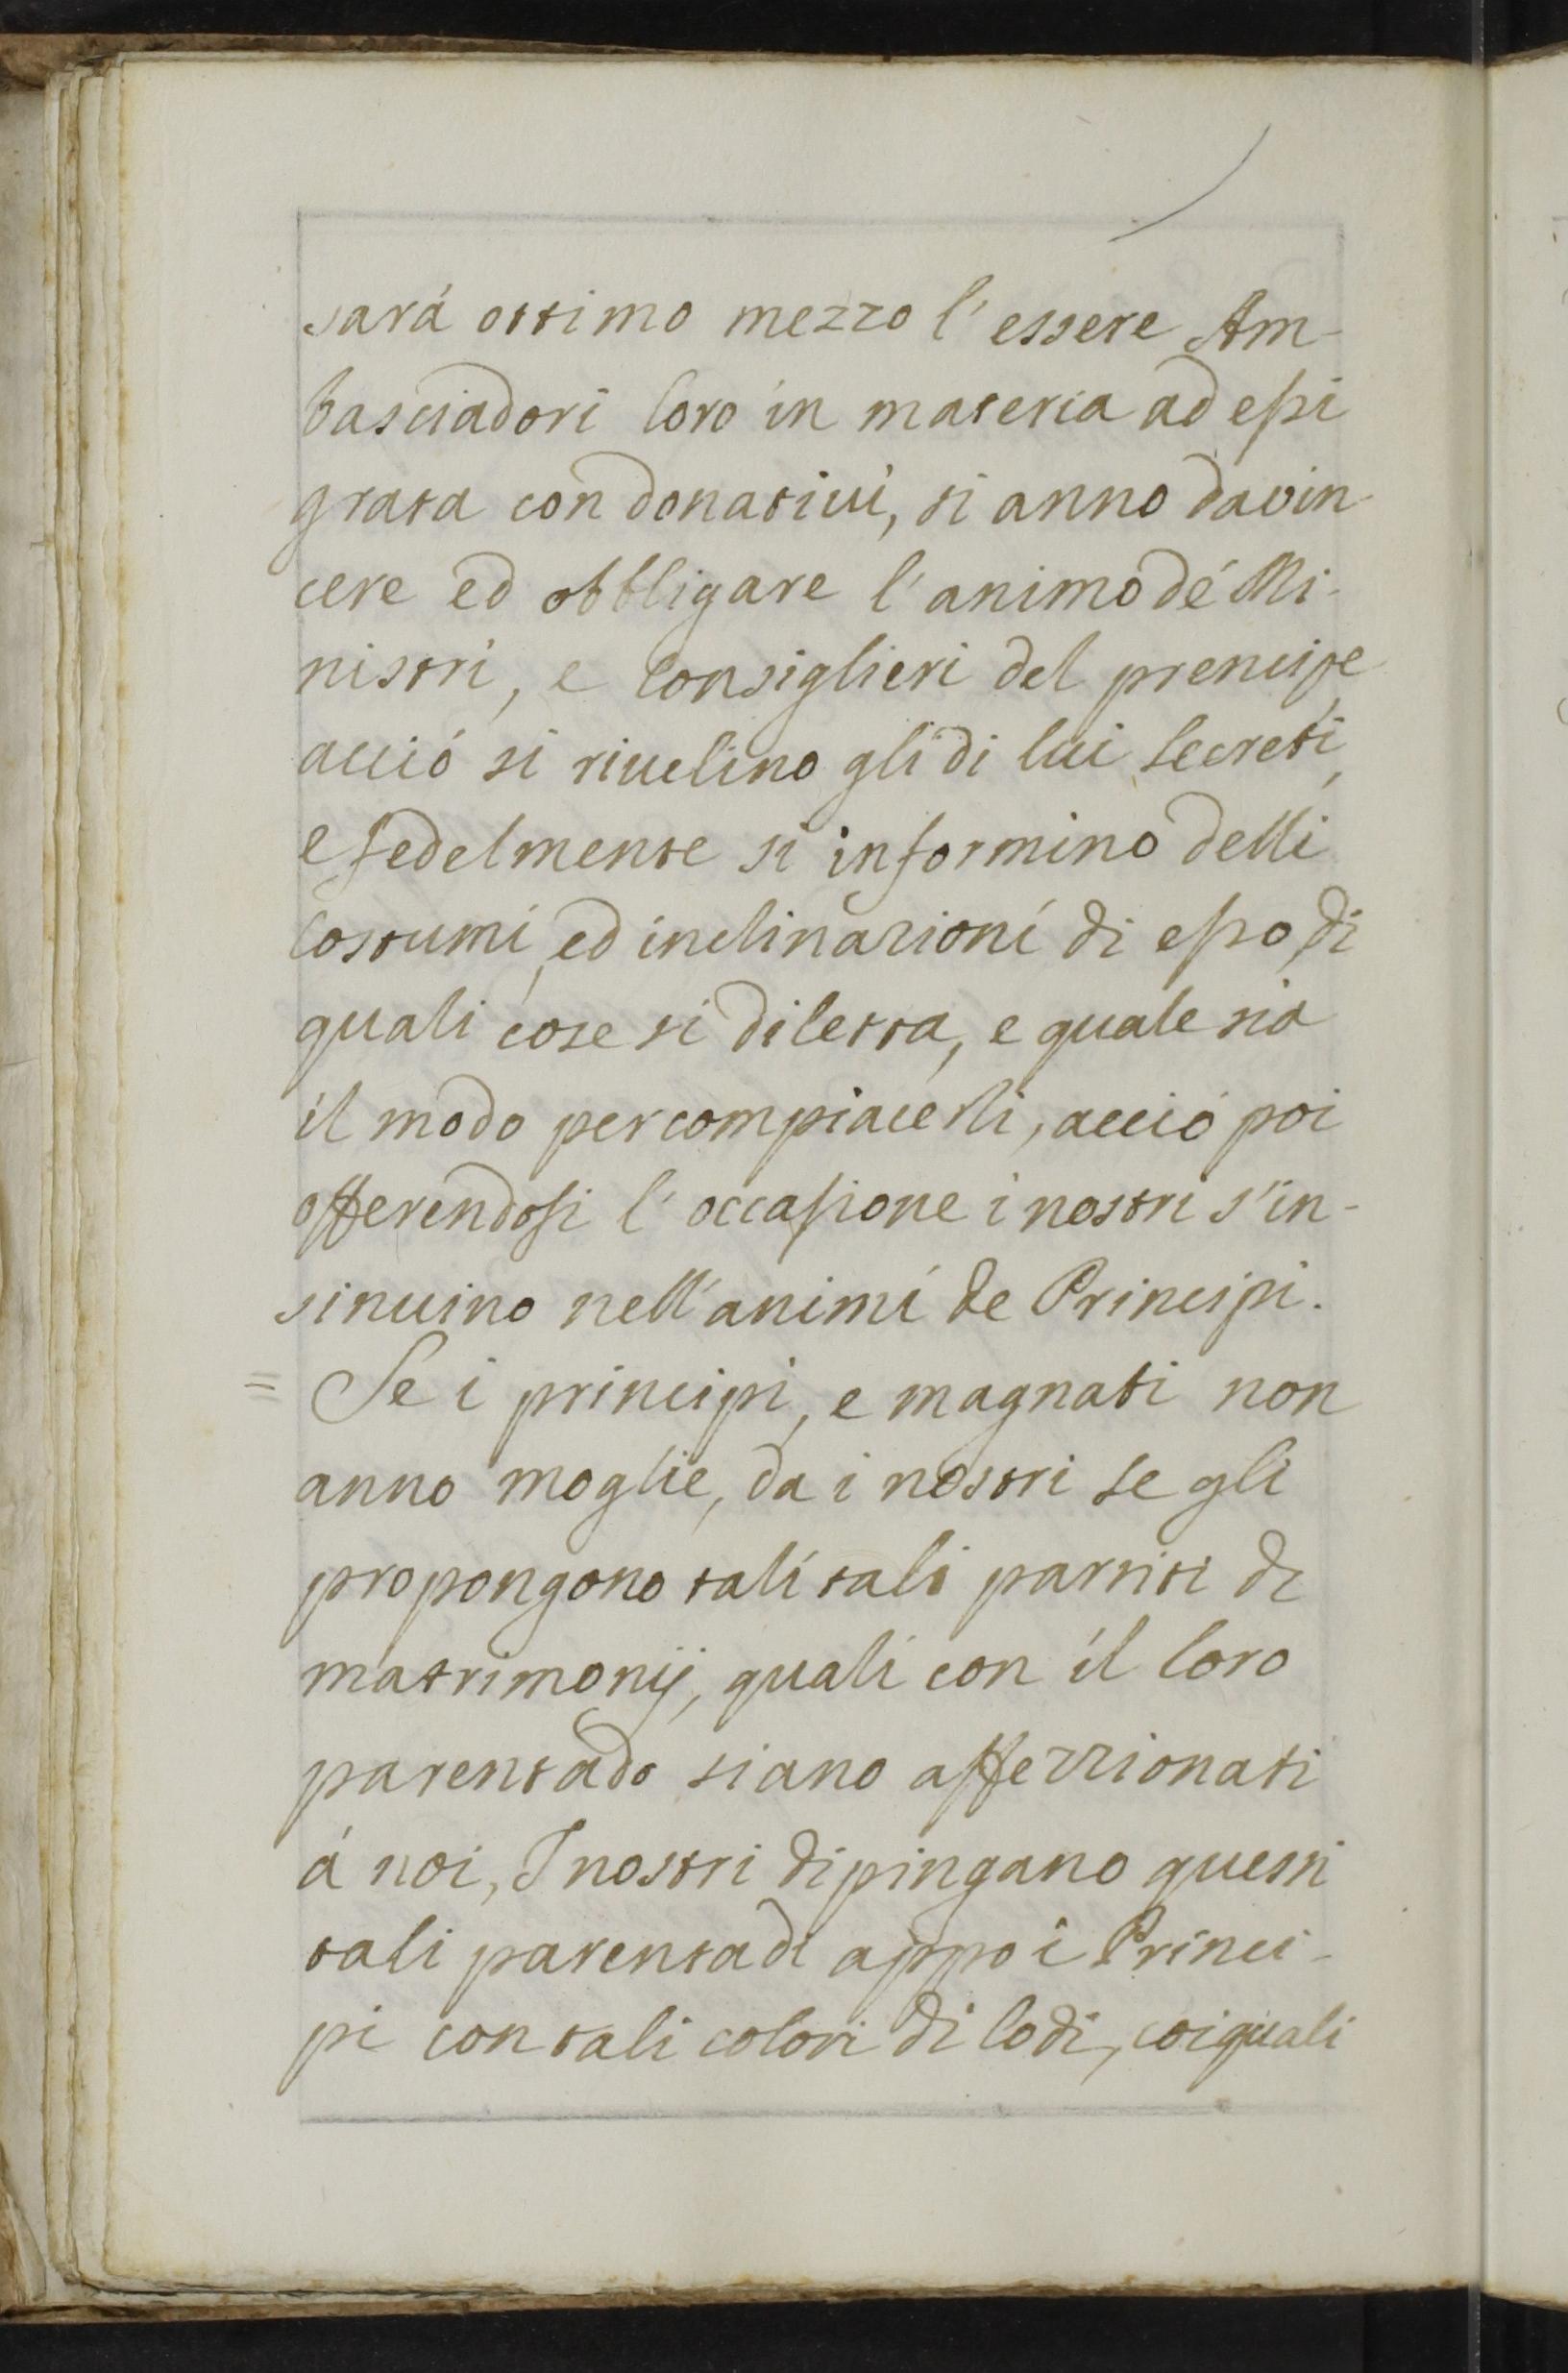 sará ottimo mezzo l'essere Am-
basciadori loro in materia ad essi
grata con donativi, si anno davin-
cere ed obbligare l'animo dé Mi-
nistri, e Consiglieri del prencipe
acció si riuelino gli di lui secreti,
e fedelmente si informino delli
Costumi, ed inclinazioni di esso, di
quali cose si diletta, e quale sia
il modo per compiacerli, acció poi
offerendosi l'occasione i nostri s'in-
sinuino nell'animi de Principi.
= Se i principi, e magnati non
anno moglie, da i nostri se gli
propongono tali tali partiti di
matrimonij, quali con il loro
parentado siano affezzionati
á noi, I nostri dipingano questi
tali parentadi appo i Princi-
pi con tali colori di lodi, coi quali